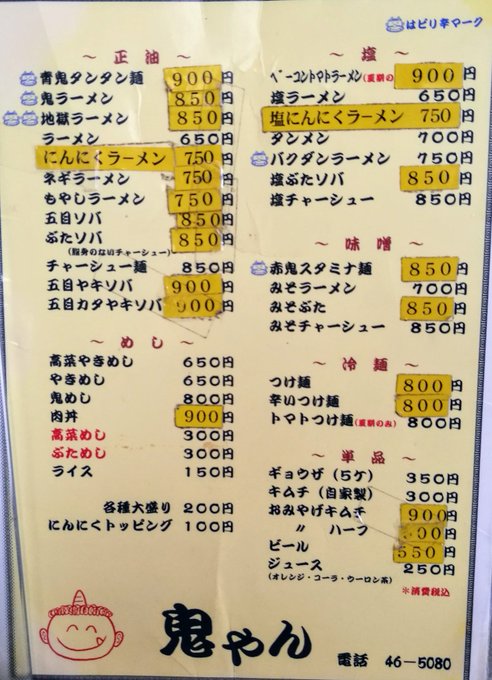 はピリ辛マーク
～ 正油 ～
青鬼タンタン麺 900円
鬼ラーメン 850円
地獄ラーメン 850円
ラーメン 650円
にんにくラーメン 750円
ネギラーメン 750円
もやしラーメン 750円
五目ソバ 850円
ぶたソバ 850円
(脂身のないチャーシュー)
チャーシュー麺 850円
五目ヤキソバ 900円
五目カタヤキソバ 900円
～ めし ～
高菜やきめし 650円
やきめし 650円
鬼めし 800円
肉丼 900円
高菜めし 300円
ぶためし 300円
ライス 150円
各種大盛り 200円
にんにくトッピング 100円
～ 塩 ～
ベーコントマトラーメン(夏期の 900円
塩ラーメン 650円
塩にんにくラーメン 750円
タンメン 700円
バクダンラーメン 750円
塩ぶたソバ 850円
塩チャーシュー 850円
～ 味噌 ～
赤鬼スタミナ麺 850円
みそラーメン 700円
みそぶた 850円
みそチャーシュー 850円
～ 冷麺 ～
つけ麺 800円
辛いつけ麺 800円
トマトつけ麺(夏期のみ) 800円
～ 単品 ～
ギョウザ (5ケ) 350円
キムチ (自家製) 300円
おみやげキムチ 900円
〃 ハーフ 円
ビール 550円
ジュース 250円
(オレンジ・コーラ・ウーロン茶)
＊消費税込
鬼やん
電話 46-5080